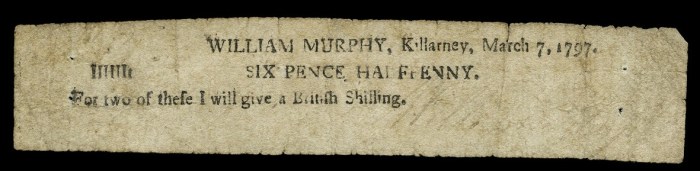 WILLIAM MURPHY, Killarney, March 7, 1797.
SIX PENCE HALFPENNY.
For two of theſe I will give a Britiſh Shilling.